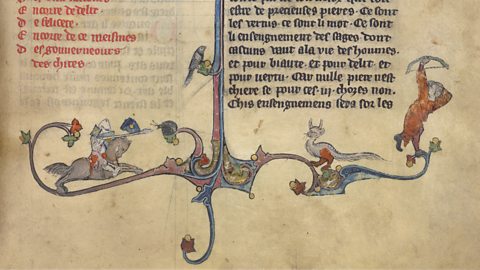 D e felicete
E ncore de ce meismes
D es gouverneours
des chites
este de precieuses pieres. Ce sont
les vertus. ce sont li mot. Ce sont
li enseignement des sages dont
cascuns vaut ala vie des houmes
et pour biaute. et pour delit et
pour vertu. Car nulle piere nest
chiere se pour ces .iii. choses non.
Chis enseignemens sera sor les